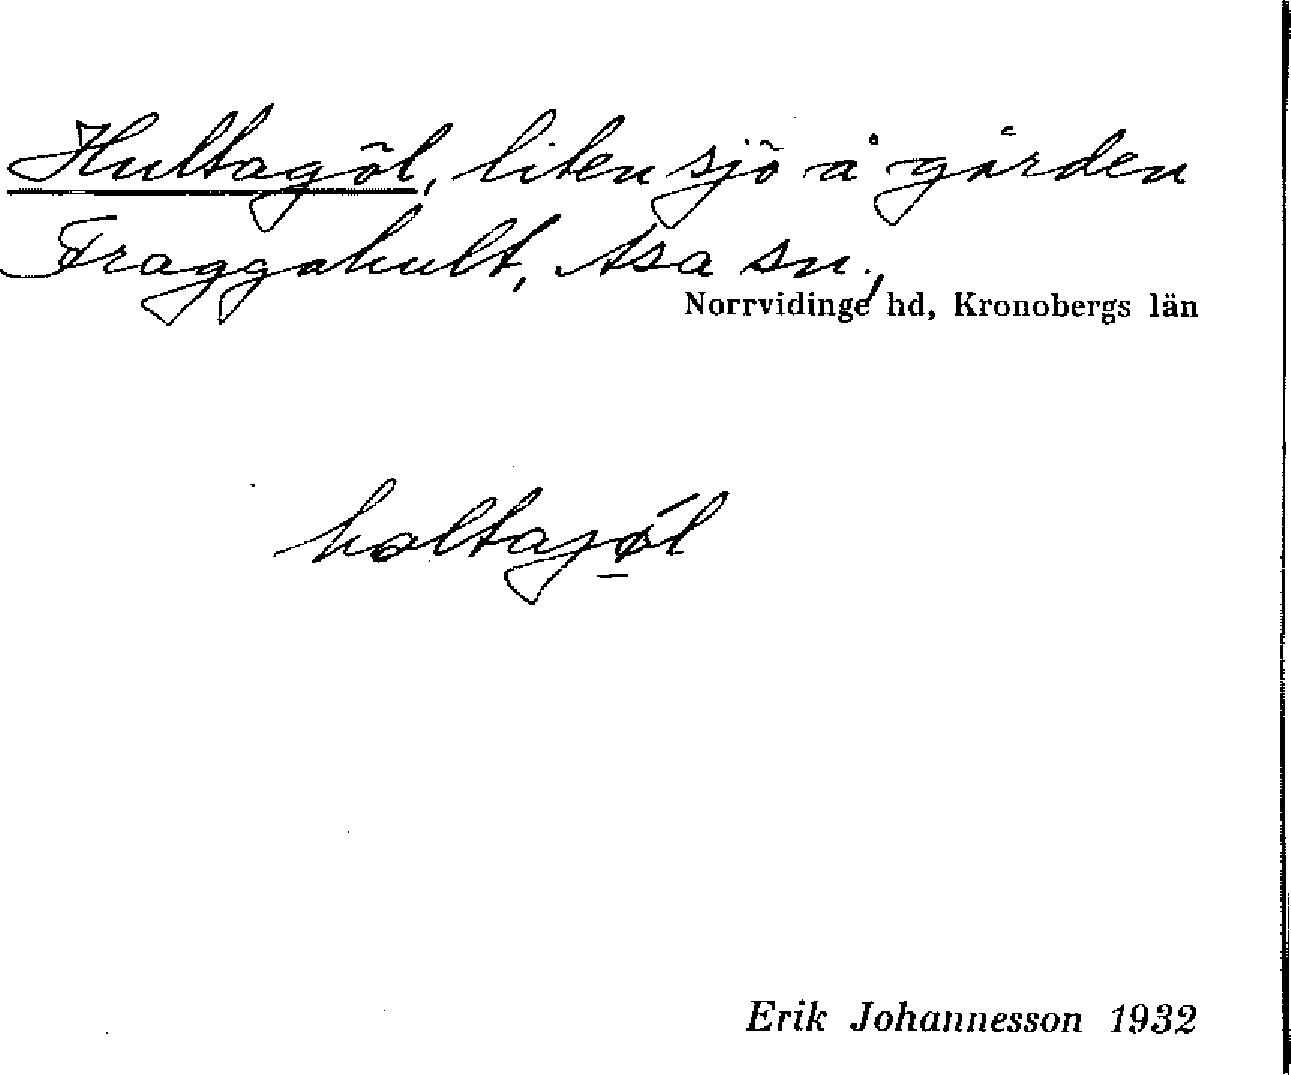 Hultagöl, liten sjö å gården
Fraggahult, Asa sn.,
Norrvidinge hd, Kronobergs län
holtajøl
Erik Johannesson 1932